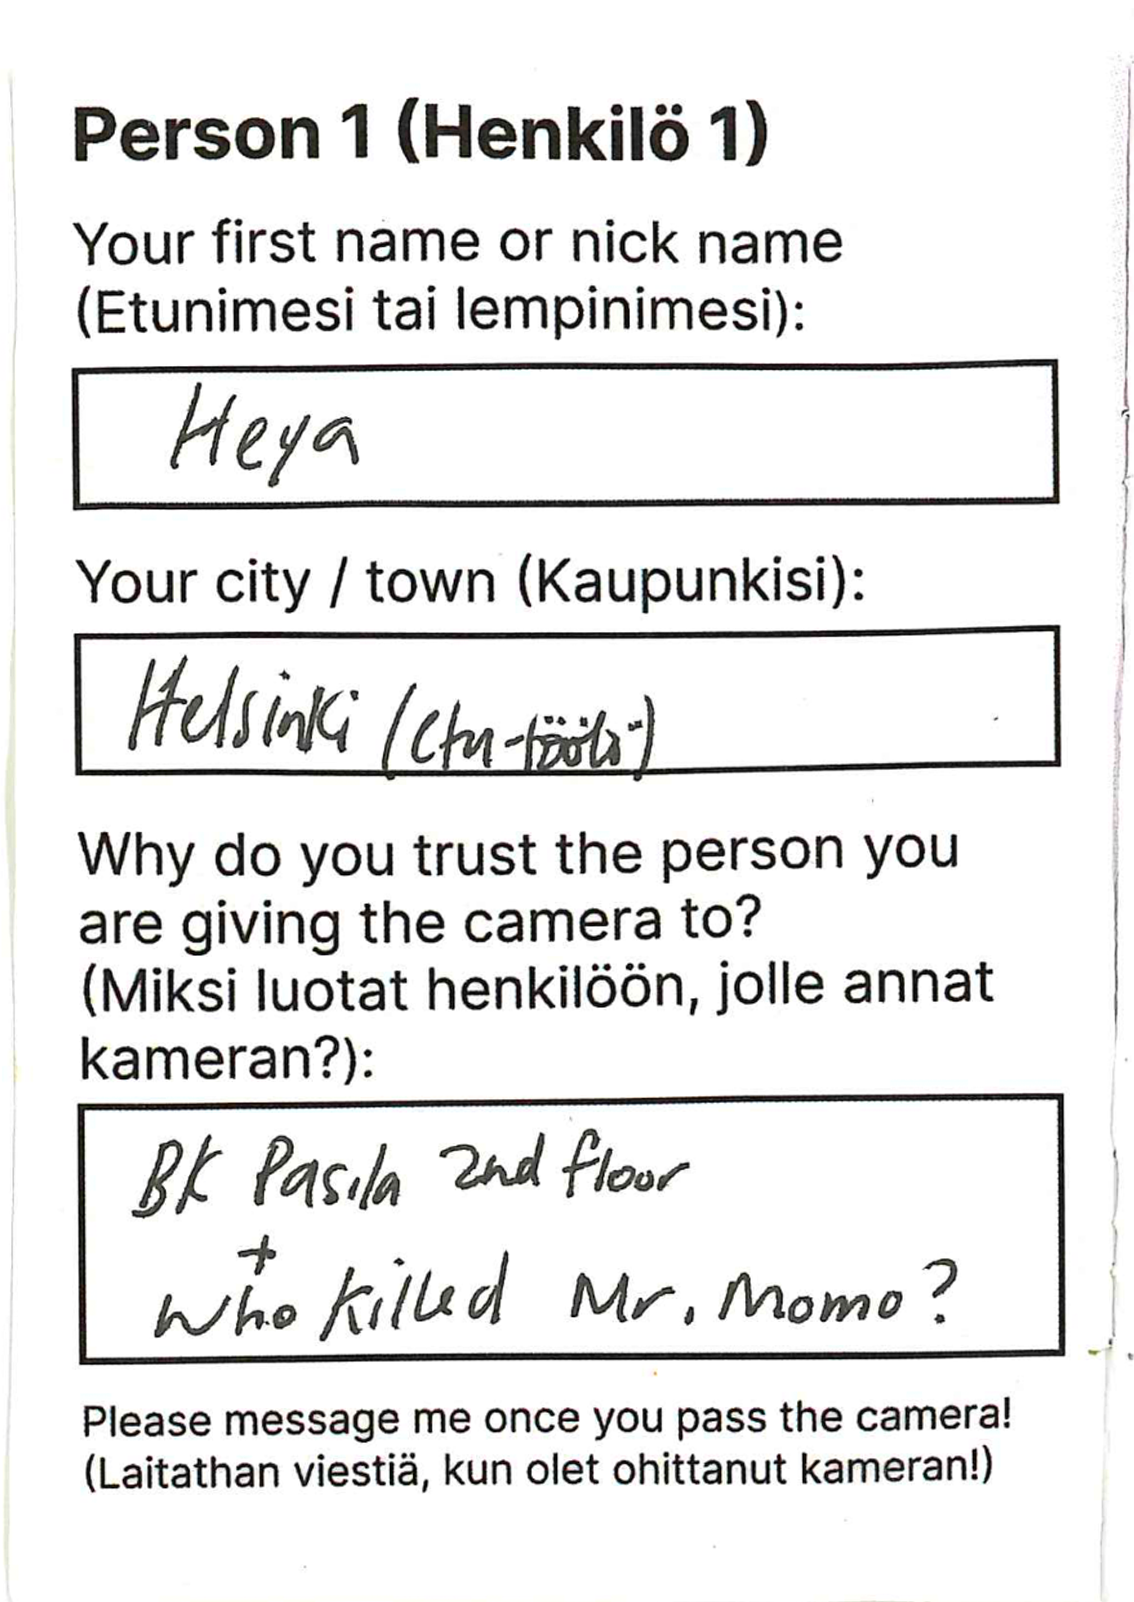 Person 1 (Henkilö 1)
Your first name or nick name
(Etunimesi tai lempinimesi):
Heya
Your city / town (Kaupunkisi):
Helsinki (Etu-töölö)
Why do you trust the person you
are giving the camera to?
(Miksi luotat henkilöön, jolle annat
kameran?):
BK Pasila 2nd floor
+
Who killed Mr. Momo?
Please message me once you pass the camera!
(Laitathan viestiä, kun olet ohittanut kameran!)